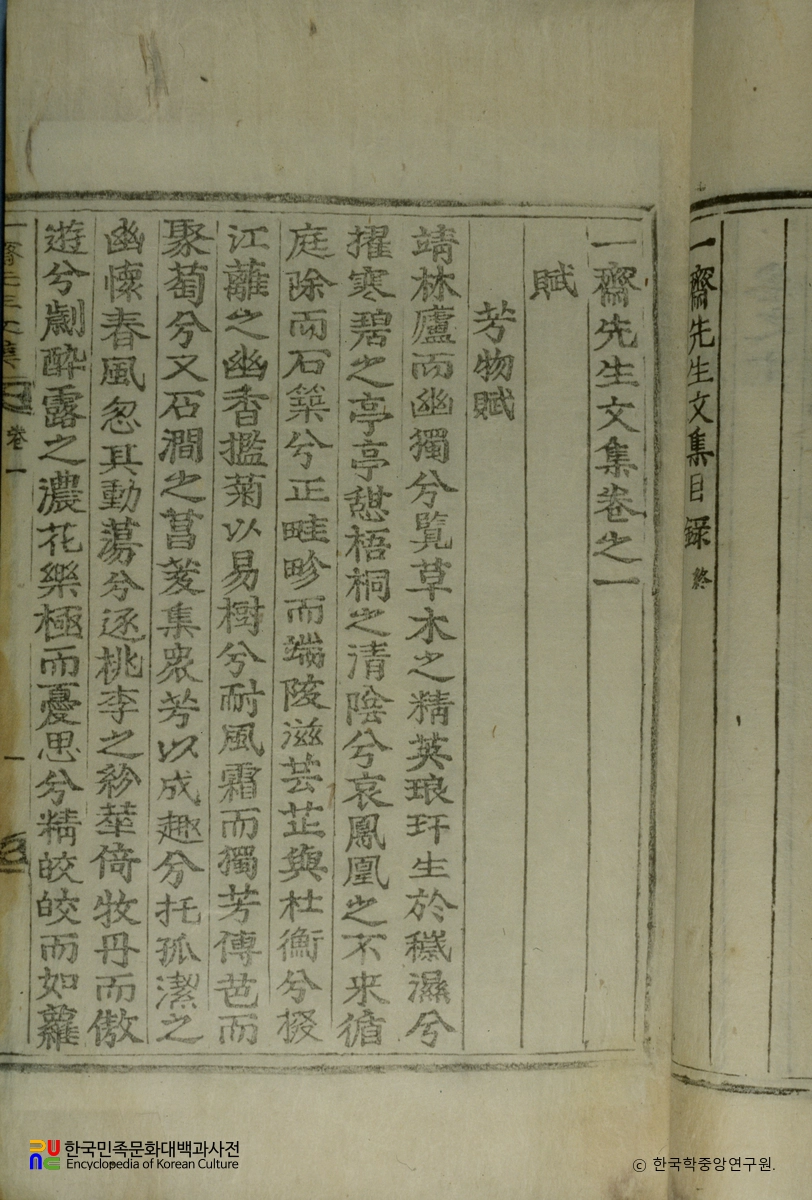 一齋先生文集目錄終
一齋先生文集卷之一
賦
芳物賦
靖林廬而幽獨兮覽草木之精英琅玕生於穢濕兮
擢寒碧之亭亭憇梧桐之清陰兮哀鳳凰之不来循
庭除而石築兮正畦畛而端陵滋芸芷與杜衡兮掇
江蘺之幽香擥菊以易樹兮耐風霜而獨芳傳芭而
聚萄兮又石澗之菖菱集衆芳以成趣兮托孤潔之
幽懷春風忽其動蕩兮逐桃李之紛華倚牧丹而傲
遊兮劇酔露之濃花樂極而憂思兮精皎皎而如蘿
一齋先生文集 卷一 一
한국민족문화대백과사전
Encyclopedia of Korean Culture
ⓒ 한국학중앙연구원.